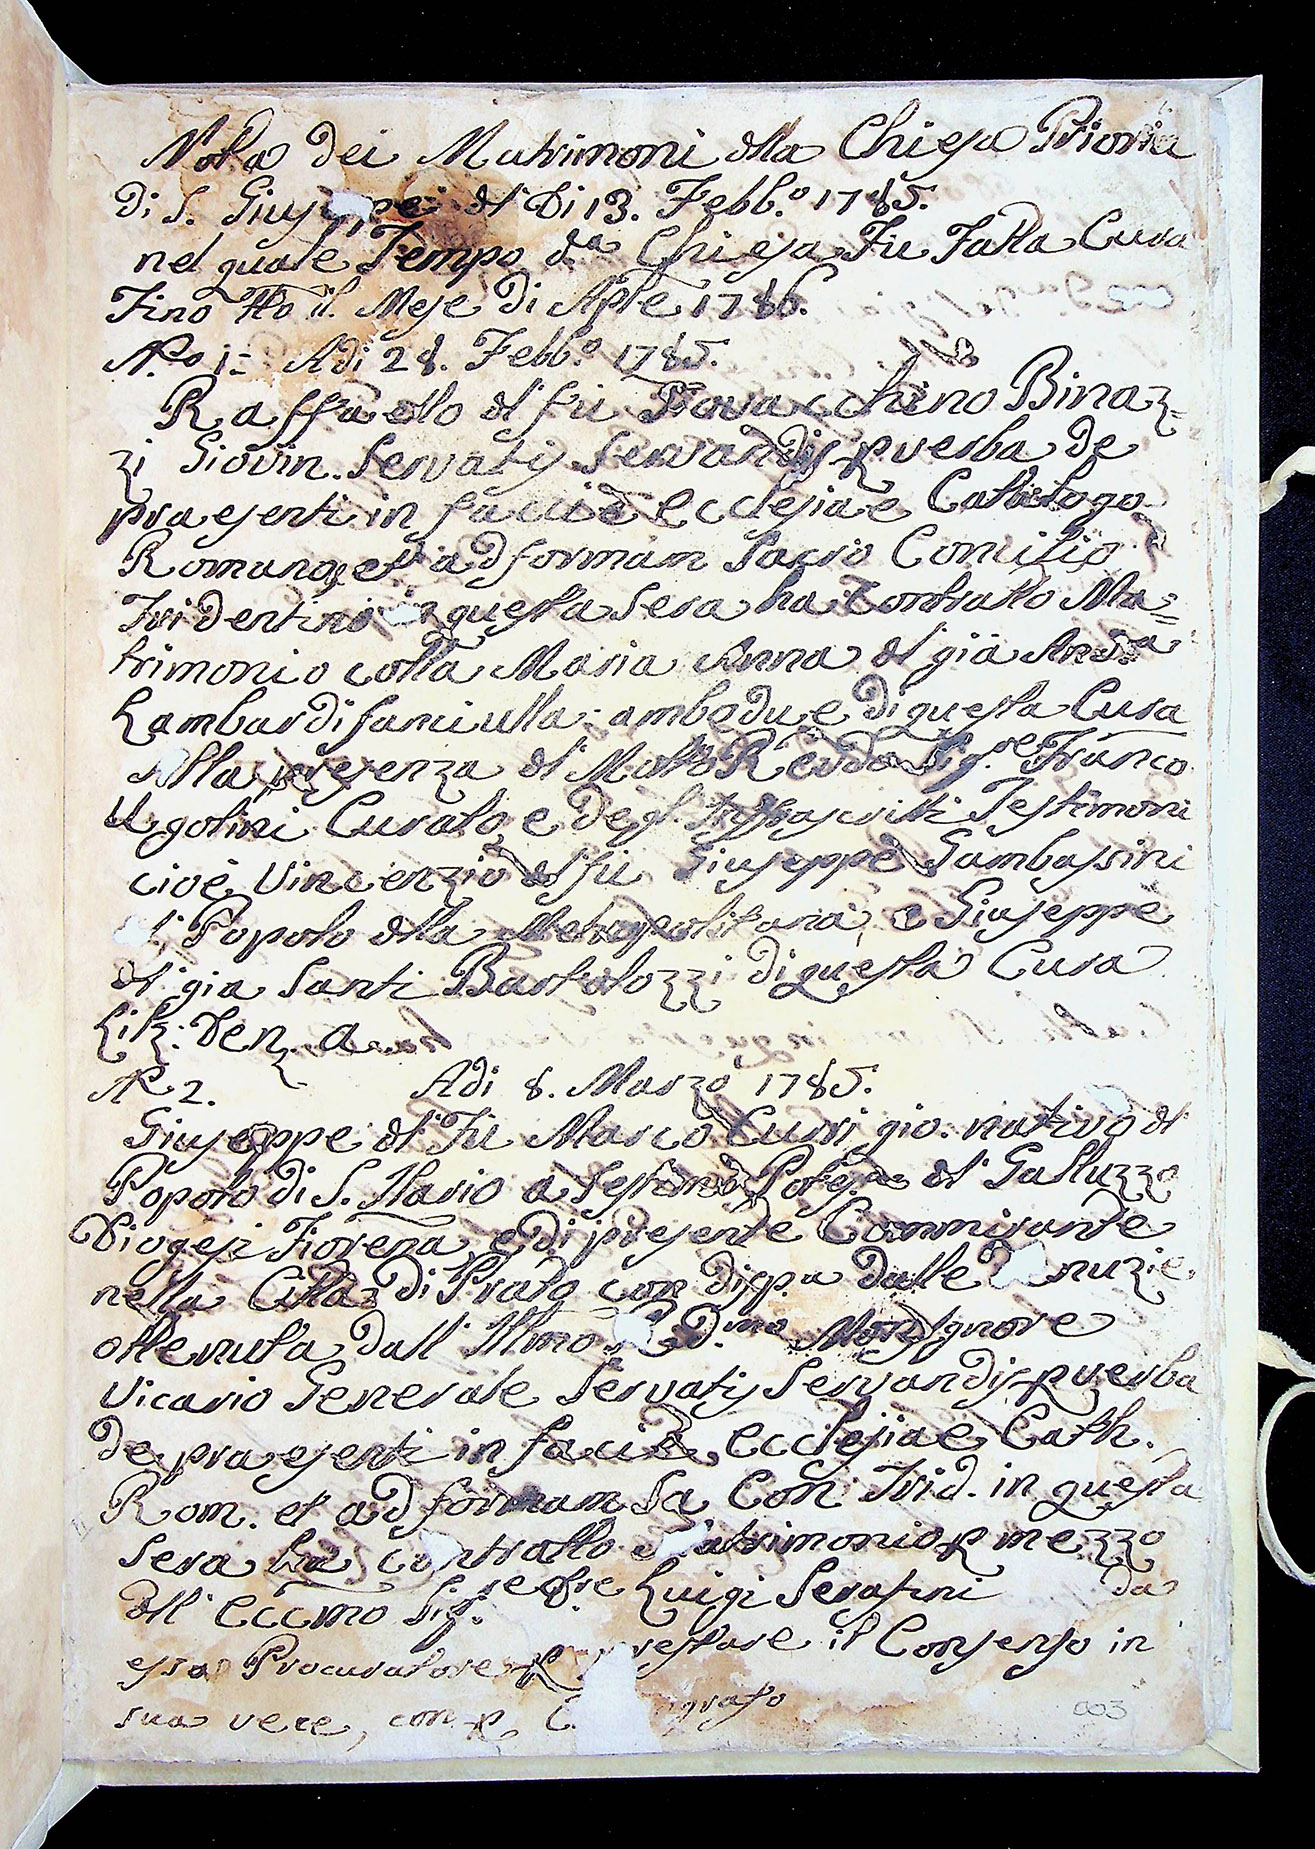 Nota dei Matrimoni dlla Chiesa Prioria
di S. Giuseppe dl Di 13. Febb.o 1785.
nel quale Tempo d.a Chiesa Fu Fatta Cura
Fino tto il Mese di Aple 1786.
N.o 1= Adi 28. Febb.o 1785.
Raffaello dl fu Giovacchino Binaz=
zi Giovin. Servatis Servandis p verba de
praesenti in faciae ecclesiae Catolago
Romanae et ad formam Sacro Concilio
Tridentino in questa Sera ha Contratto Ma=
trimonio colla Maria Anna dl già And.a
Lambardi fanciulla ambedue di questa Cura
Alla presenza dl Molto Revdo Sig.re Franco
Ugolini Curato e degl' Infrascritti Testimoni
cioè Vincenzio dl fu Giuseppe Gambassini
dl Popolo dlla Metropolitana, e Giuseppe
dl gia Santi Bartolozzi di questa Cura
Liz: Denz. a
N.o 2. Adi 8. Marzo 1785.
Giuseppe dl Fu Marco Curri gio. nativo dl
Popolo di S. Ilario a Potes. dl Galluzzo
Diogesi Fiorena e di presente Commirante
nella Citta di Prato con disp.a dalle Denuzie
ottenuta dall' Illmo e D.mo Monsignore
Vicario Generale Servatis Servandis p verba
de praesenti in faciae ecclesiae Cath.
Rom. et ad formam Sa Con: Trid. in questa
Sera ha contratto Matrimonio p mezzo
dll' eccmo Sig.re Luigi Serafini da
esso Procuratore p prestare il Consenso in
sua vece, con p.
003